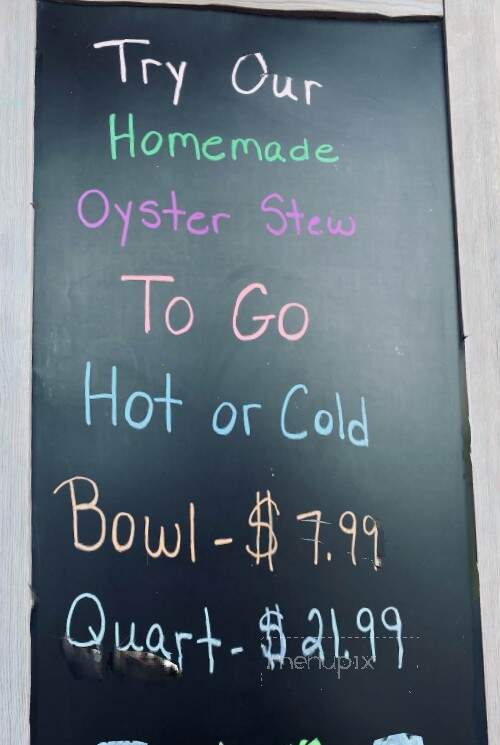 Try Our
Homemade
Oyster Stew
To Go
Hot or Cold
Bowl - $ 7.99
Quart - $ 21.99
menupix